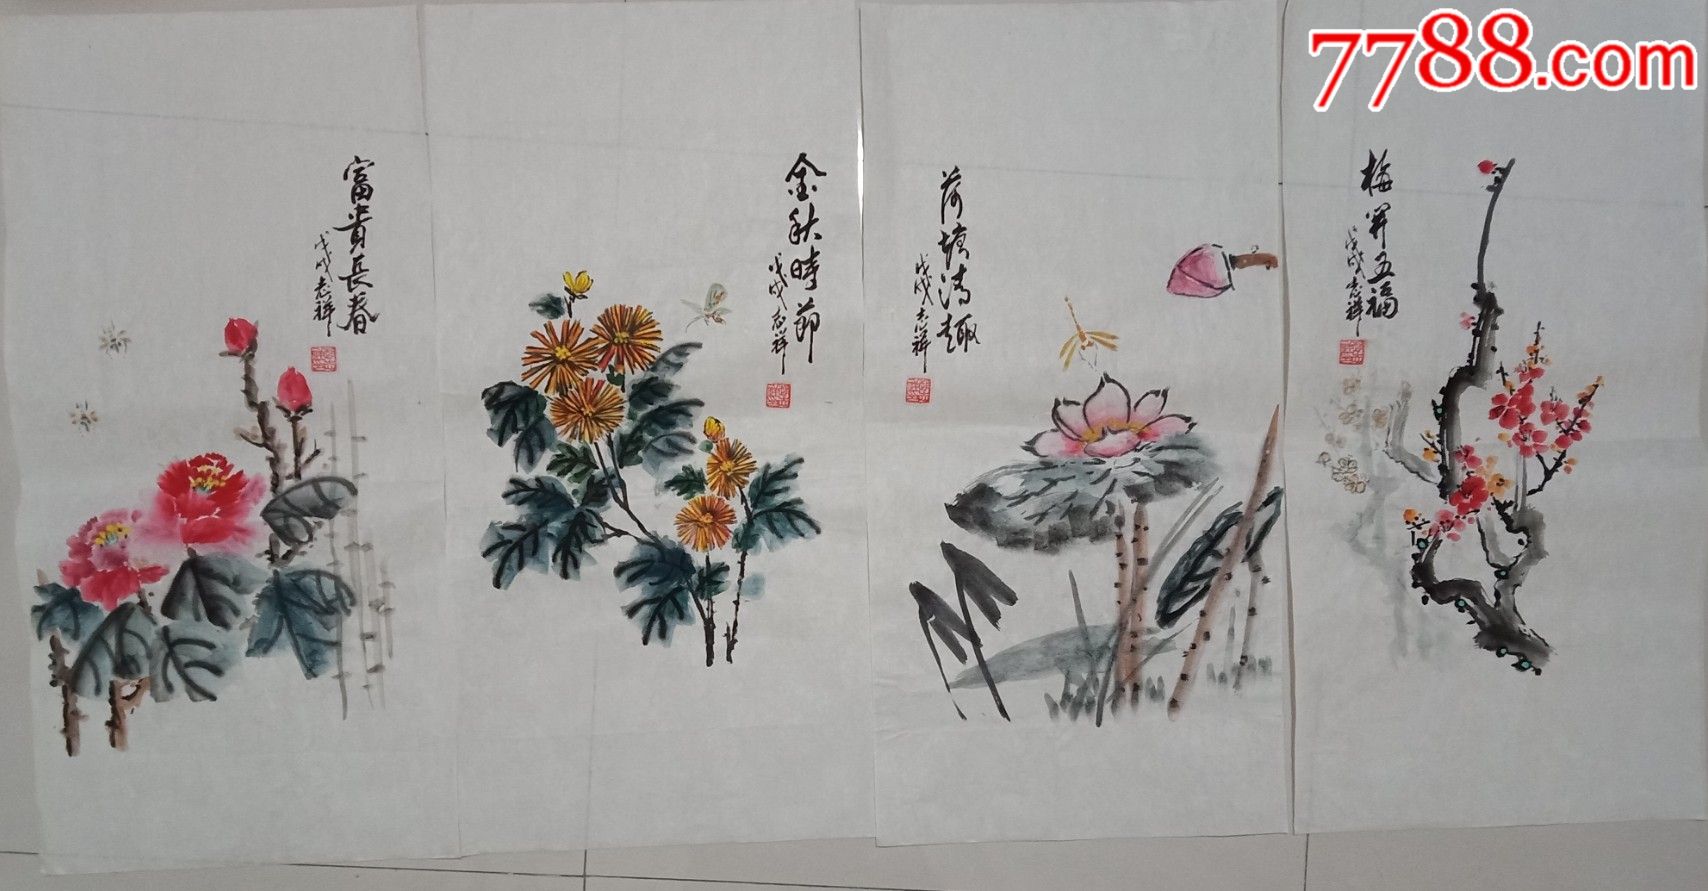 7788.com
富貴長春
戊戌志祥
金秋時節
戊戌志祥
荷塘清趣
戊戌志祥
梅開五福
戊戌志祥